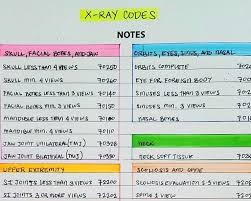 X-RAY CODES
NOTES
SKULL, FACIAL BONES, AND JAW
SKULL LESS THAN 4 VIEWS 70250
SKULL MIN. 4 VIEWS 70260
FACIAL BONES LESS THAN 3 VIEWS 70140
FACIAL BONES MIN. 3 VIEWS 70150
MANDIBLE LESS THAN 4 VIEWS 70100
MANDIBLE MIN. 4 VIEWS 70110
JAW JOINT UNILATERAL (TMJ) 70328
JAW JOINT BILATERAL (TMJ) 70330
UPPER EXTREMITY
SI JOINTS LESS THAN 3 VIEWS 72200
SI JOINTS 3 OR MORE VIEWS 72202
ORBITS, EYES, SINUS, AND NASAL
ORBITS COMPLETE
EYE FOR FOREIGN BODY
SINUSES LESS THAN 3 VIEWS
SINUSES MIN. 3 VIEWS
NASAL BONES MIN. 3 VIEWS
NECK
NECK SOFT TISSUE
SCOLIOSIS AND SPINE
SCOLIOSIS EVALUATION 1 VIEW
SPINE 1 VIEW